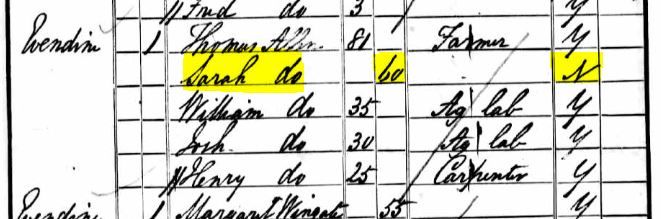 // Fred do 3 Y
Wendine 1 Thomas Allin 81 Farmer Y
Sarah do 60 N
William do 35 Ag lab Y
Josh. do 30 Ag lab Y
// Henry do 25 Carpenter Y
Wendine 1 Margaret Wingate 55 Y